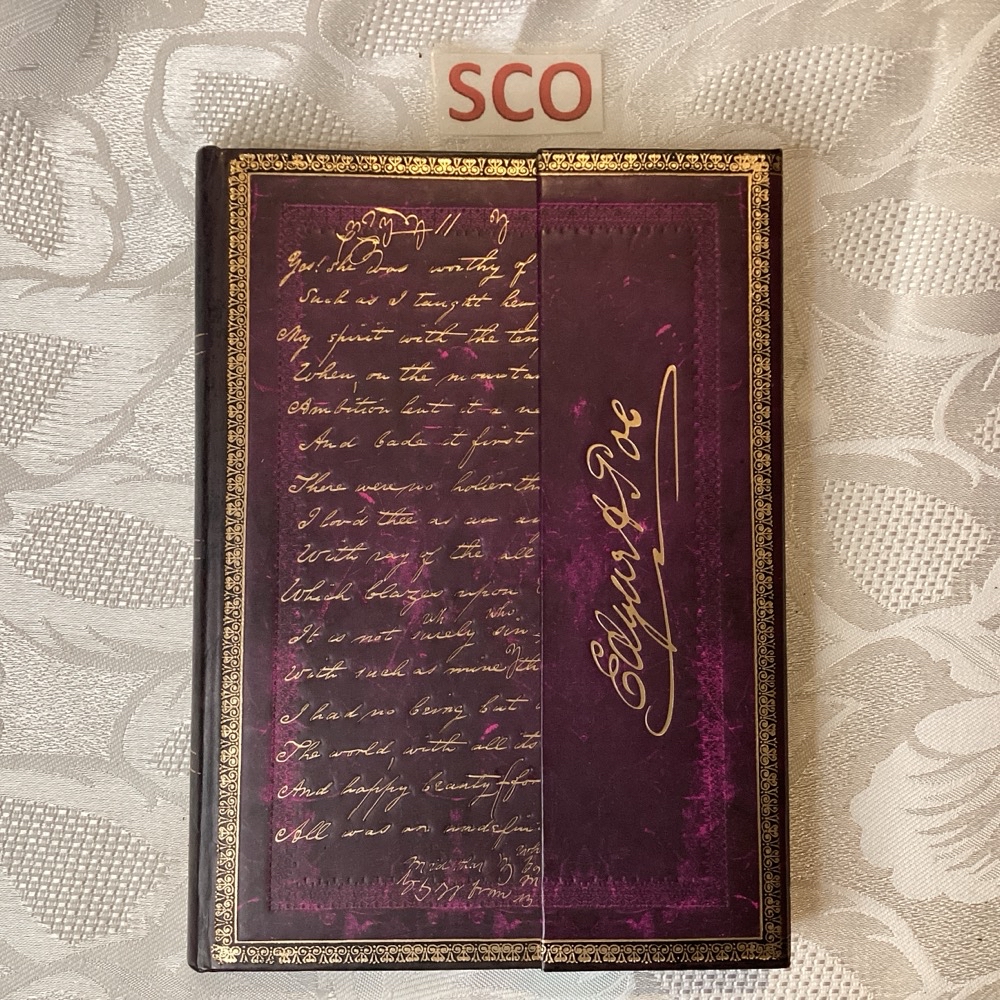 SCO
Yes! she was worthy of
Such as I taught her
My spirit with the
When, on the
Ambition lent it a
And bade it first
There were no holier
I lov'd thee as an
With ray of the all
Which blazes upon
It is not surely sin
With such as mine
I had no being but
The world with all its
And happy beauty
All was an
Edgar A Poe